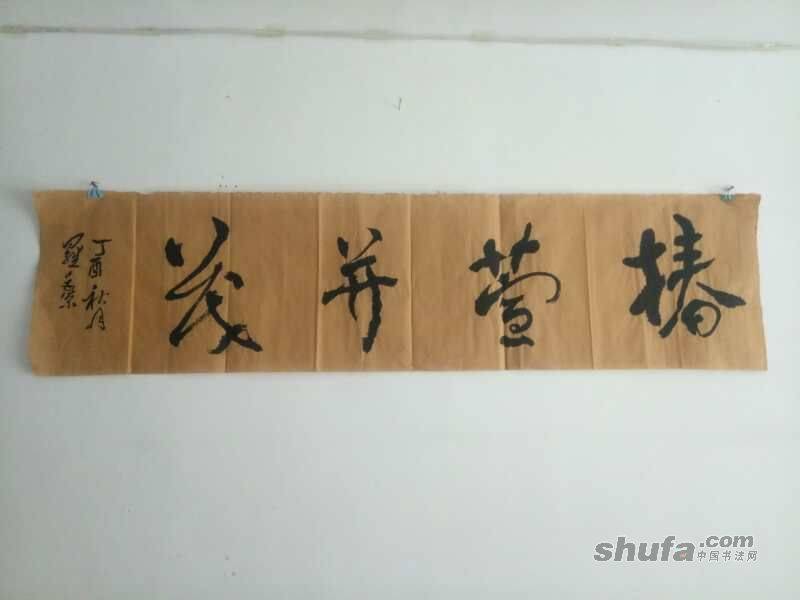 椿萱并茂
丁酉秋月
shufa.com
中国书法网